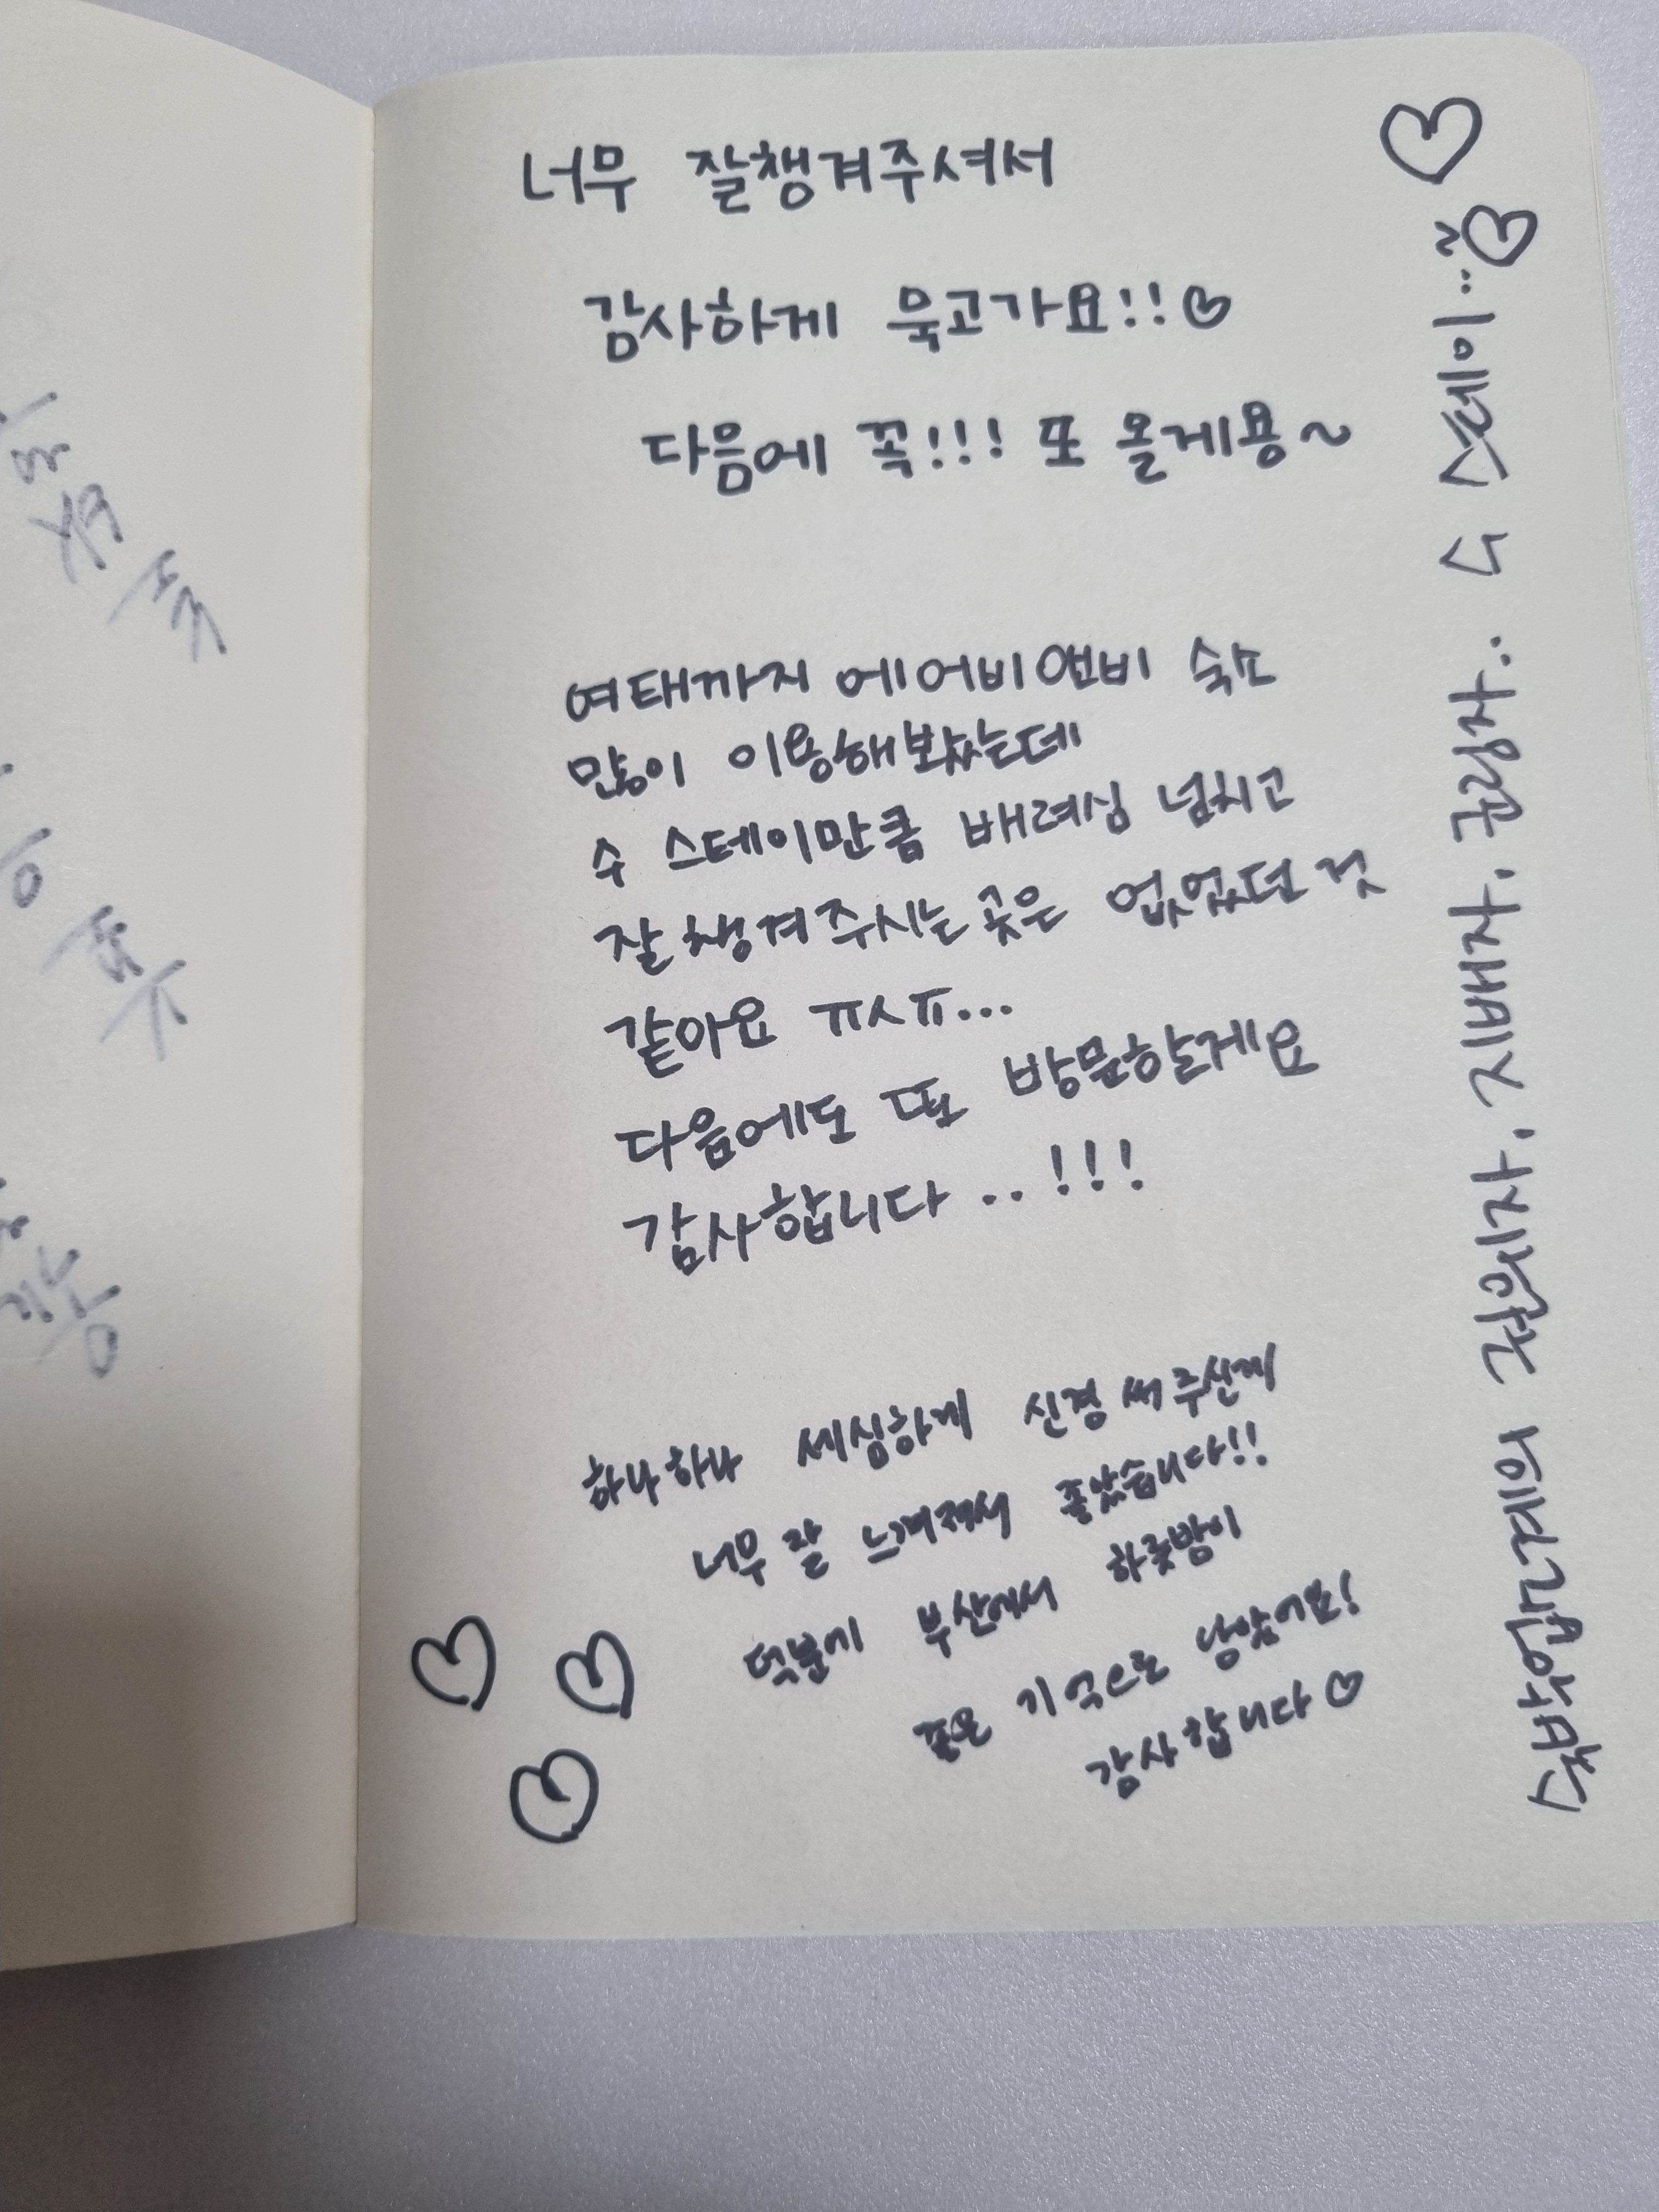 너무 잘챙겨주셔서
감사하게 묵고가요!!♡
다음에 꼭!!! 또 올게용~
여태까지 에어비앤비 숙소
많이 이용해봤는데
수 스테이만큼 배려심 넘치고
잘 챙겨주시는 곳은 없었던 것
같아요 ㅠㅅㅠ...
다음에도 또 방문할게요
감사합니다..!!!
하나하나 세심하게 신경써주신게
너무 잘 느껴져서 좋았습니다!!
덕분에 부산에서 하룻밤이
좋은 기억으로 남았어요!
감사합니다♡
숙박업계의 권위자, 지배자, 군림자.. 수 스테이..~